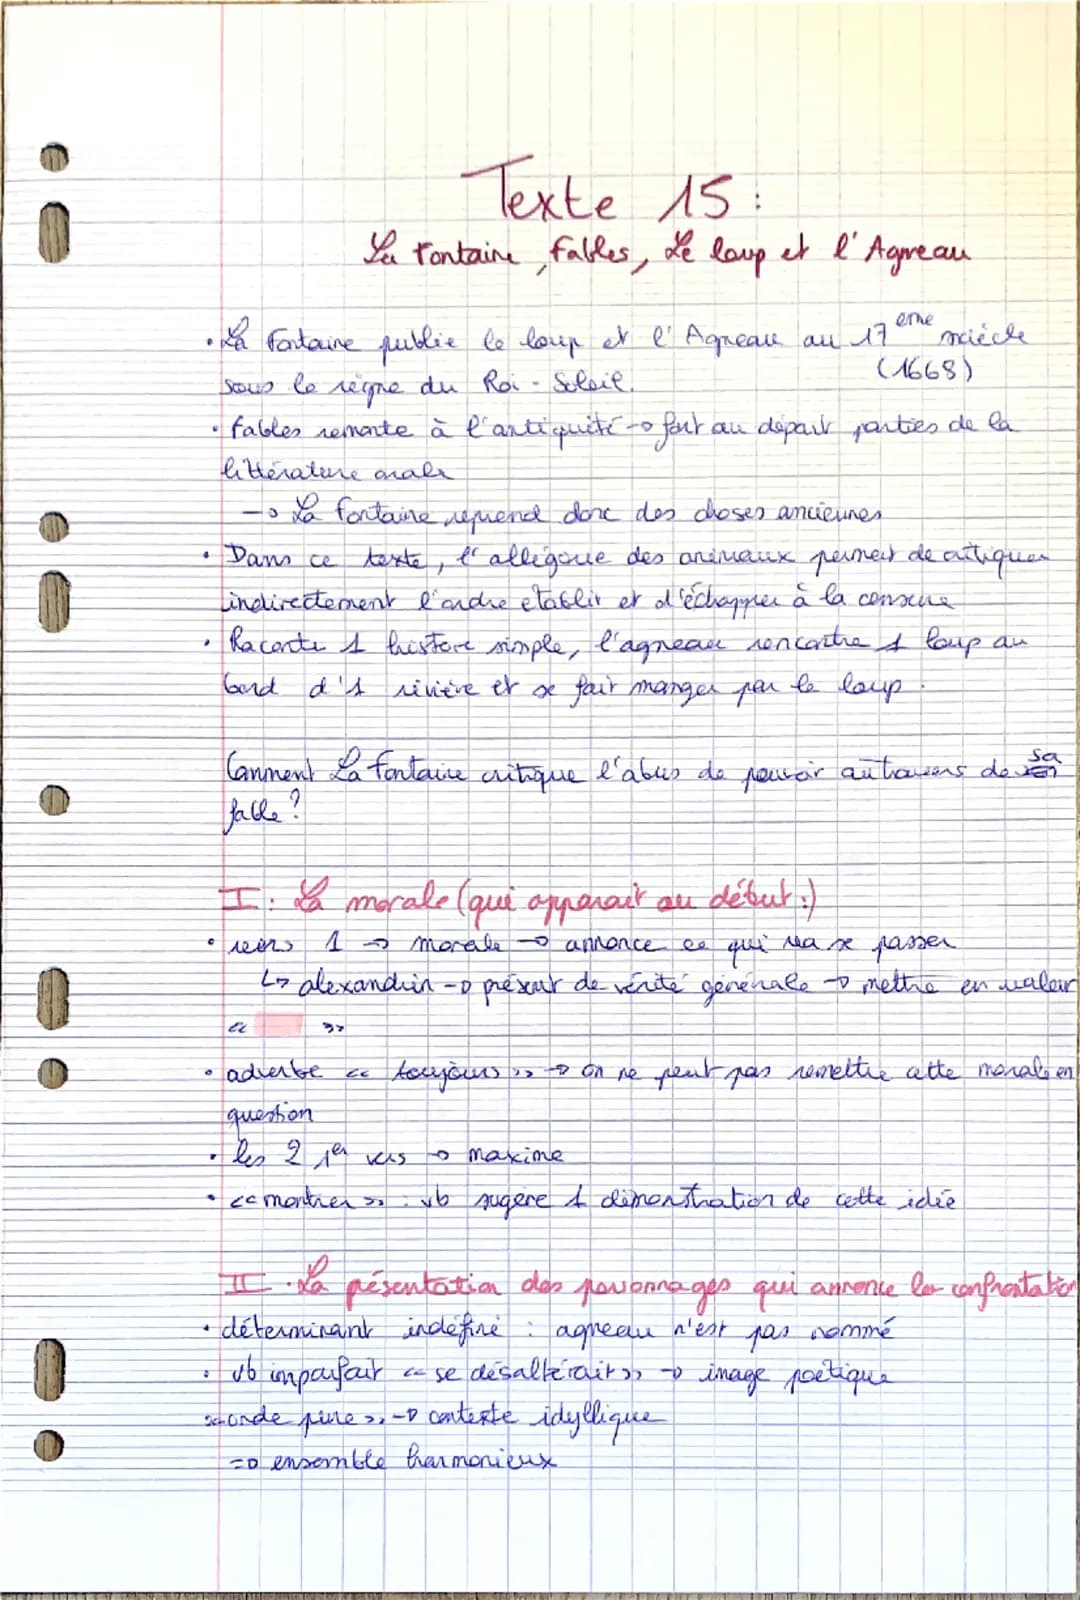 Texte 15 :
La Fontaine, Fables, Le loup et l'Agneau
• La Fontaine publie le loup et l'Agneau au 17 eme siècle
(1668)
sous le règne du Roi-Soleil.
• Fables remonte à l'antiquité → font au départ parties de la
littérature orale
→ La Fontaine reprend donc des choses anciennes
• Dans ce texte, l'allégorie des animaux permet de critiquer
indirectement l'ordre établit et d'échapper à la censure
• Raconte 1 histoire simple, l'agneau rencontre 1 loup au
bord d'1 rivière et se fait manger par le loup.
Comment La Fontaine critique l'abus de pouvoir autravers de sa
fable ?
I : La morale (qui apparait au début :)
• vers 1 → morale → annonce ce qui va se passer
↳ alexandrin → présent de vérité générale → mettre en valeur
« »
• adverbe « toujours » → on ne peut pas remettre cette morale en
question
• les 2 1er vers → maxime
• « montrer » : vb sugère 1 démonstration de cette idée
II . La présentation des personnages qui annonce la confrontation
• déterminant indéfini : agneau n'est pas nommé
• vb imparfait « se désaltérait » → image poétique
« onde pure » → contexte idyllique
=> ensemble harmonieux